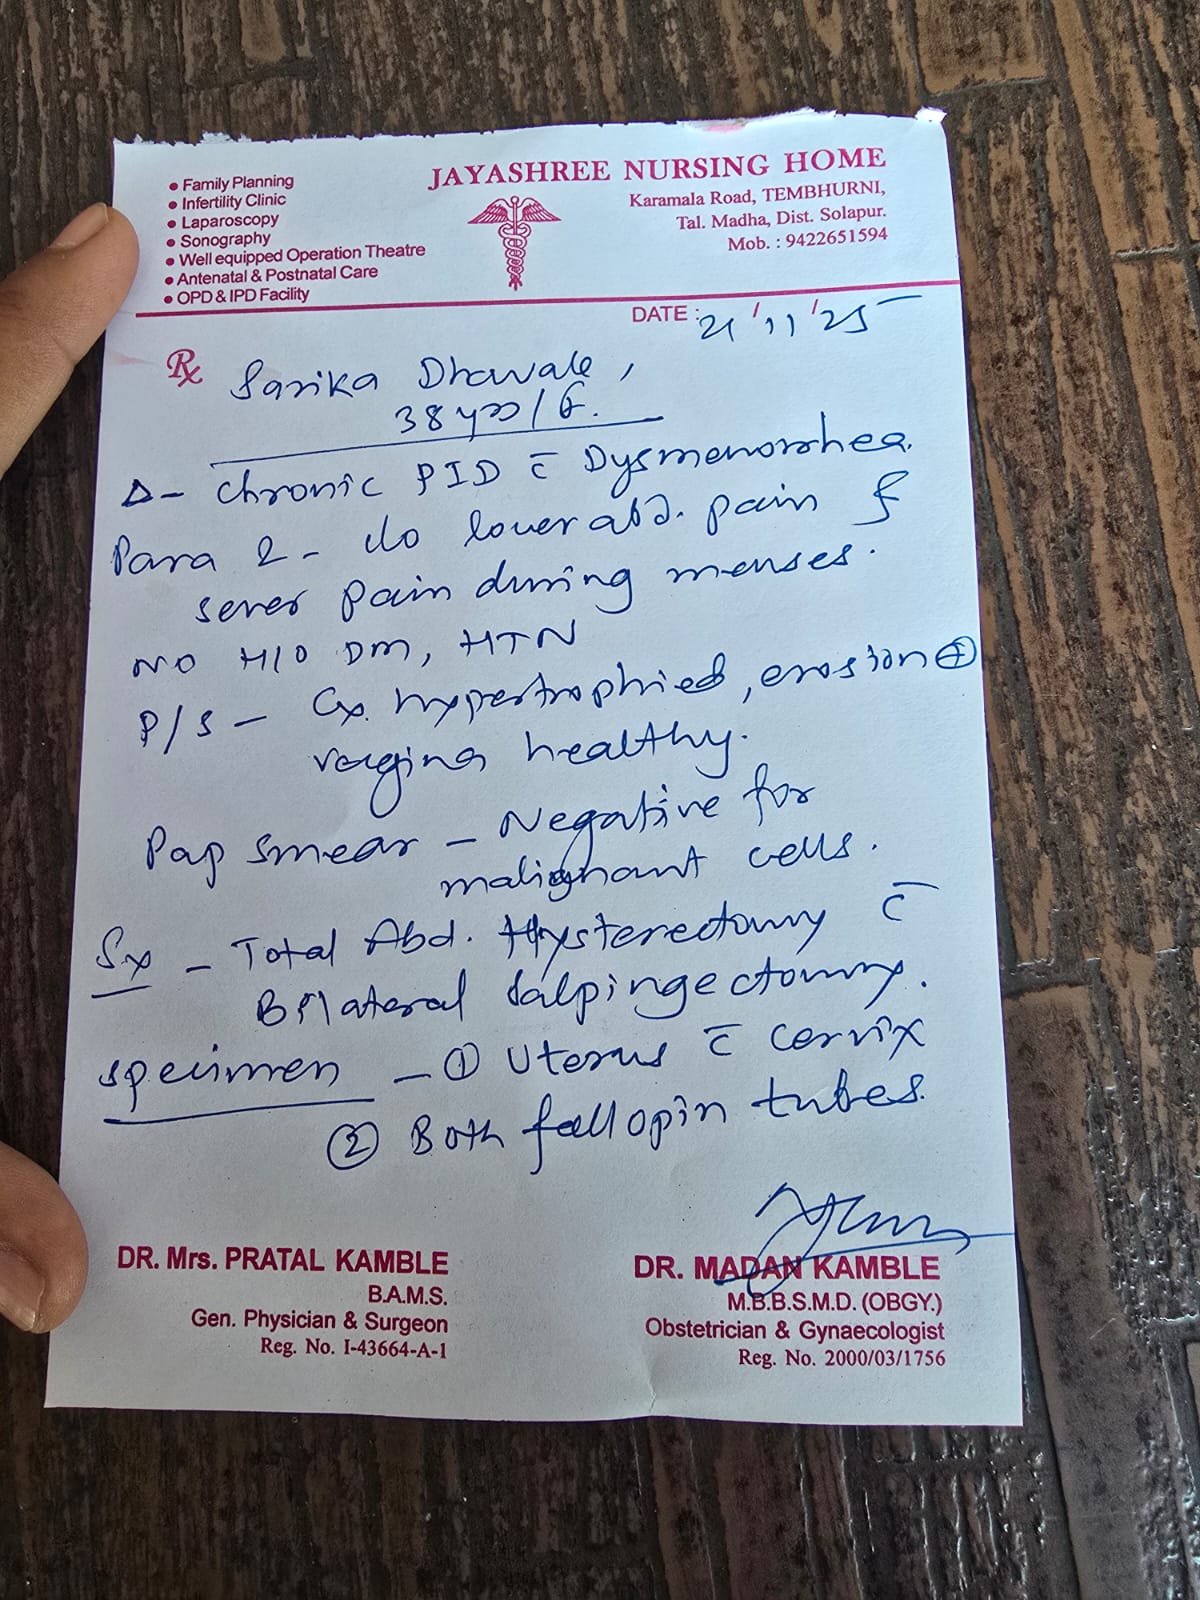 JAYASHREE NURSING HOME
Karamala Road, TEMBHURNI,
Tal. Madha, Dist. Solapur.
Mob. : 9422651594
• Family Planning
• Infertility Clinic
• Laparoscopy
• Sonography
• Well equipped Operation Theatre
• Antenatal & Postnatal Care
• OPD & IPD Facility
DATE : 21/11/25
Rx Sarika Dhavale,
38 yrs/F.
Δ- Chronic PID c̄ Dysmenorrhea.
Para 2 - c/o lower abd. pain &
sever pain during menses.
NO H/O DM, HTN
P/S - Cx. hypertrophied, erosion ⊕
vagina healthy.
Pap smear - Negative for
malignant cells.
Sx - Total Abd. Hysterectomy c̄
Bilateral Salpingectomy.
specimen - ① Uterus c̄ cervix
② Both fallopin tubes.
DR. Mrs. PRATAL KAMBLE
B.A.M.S.
Gen. Physician & Surgeon
Reg. No. I-43664-A-1
DR. MADAN KAMBLE
M.B.B.S.M.D. (OBGY.)
Obstetrician & Gynaecologist
Reg. No. 2000/03/1756